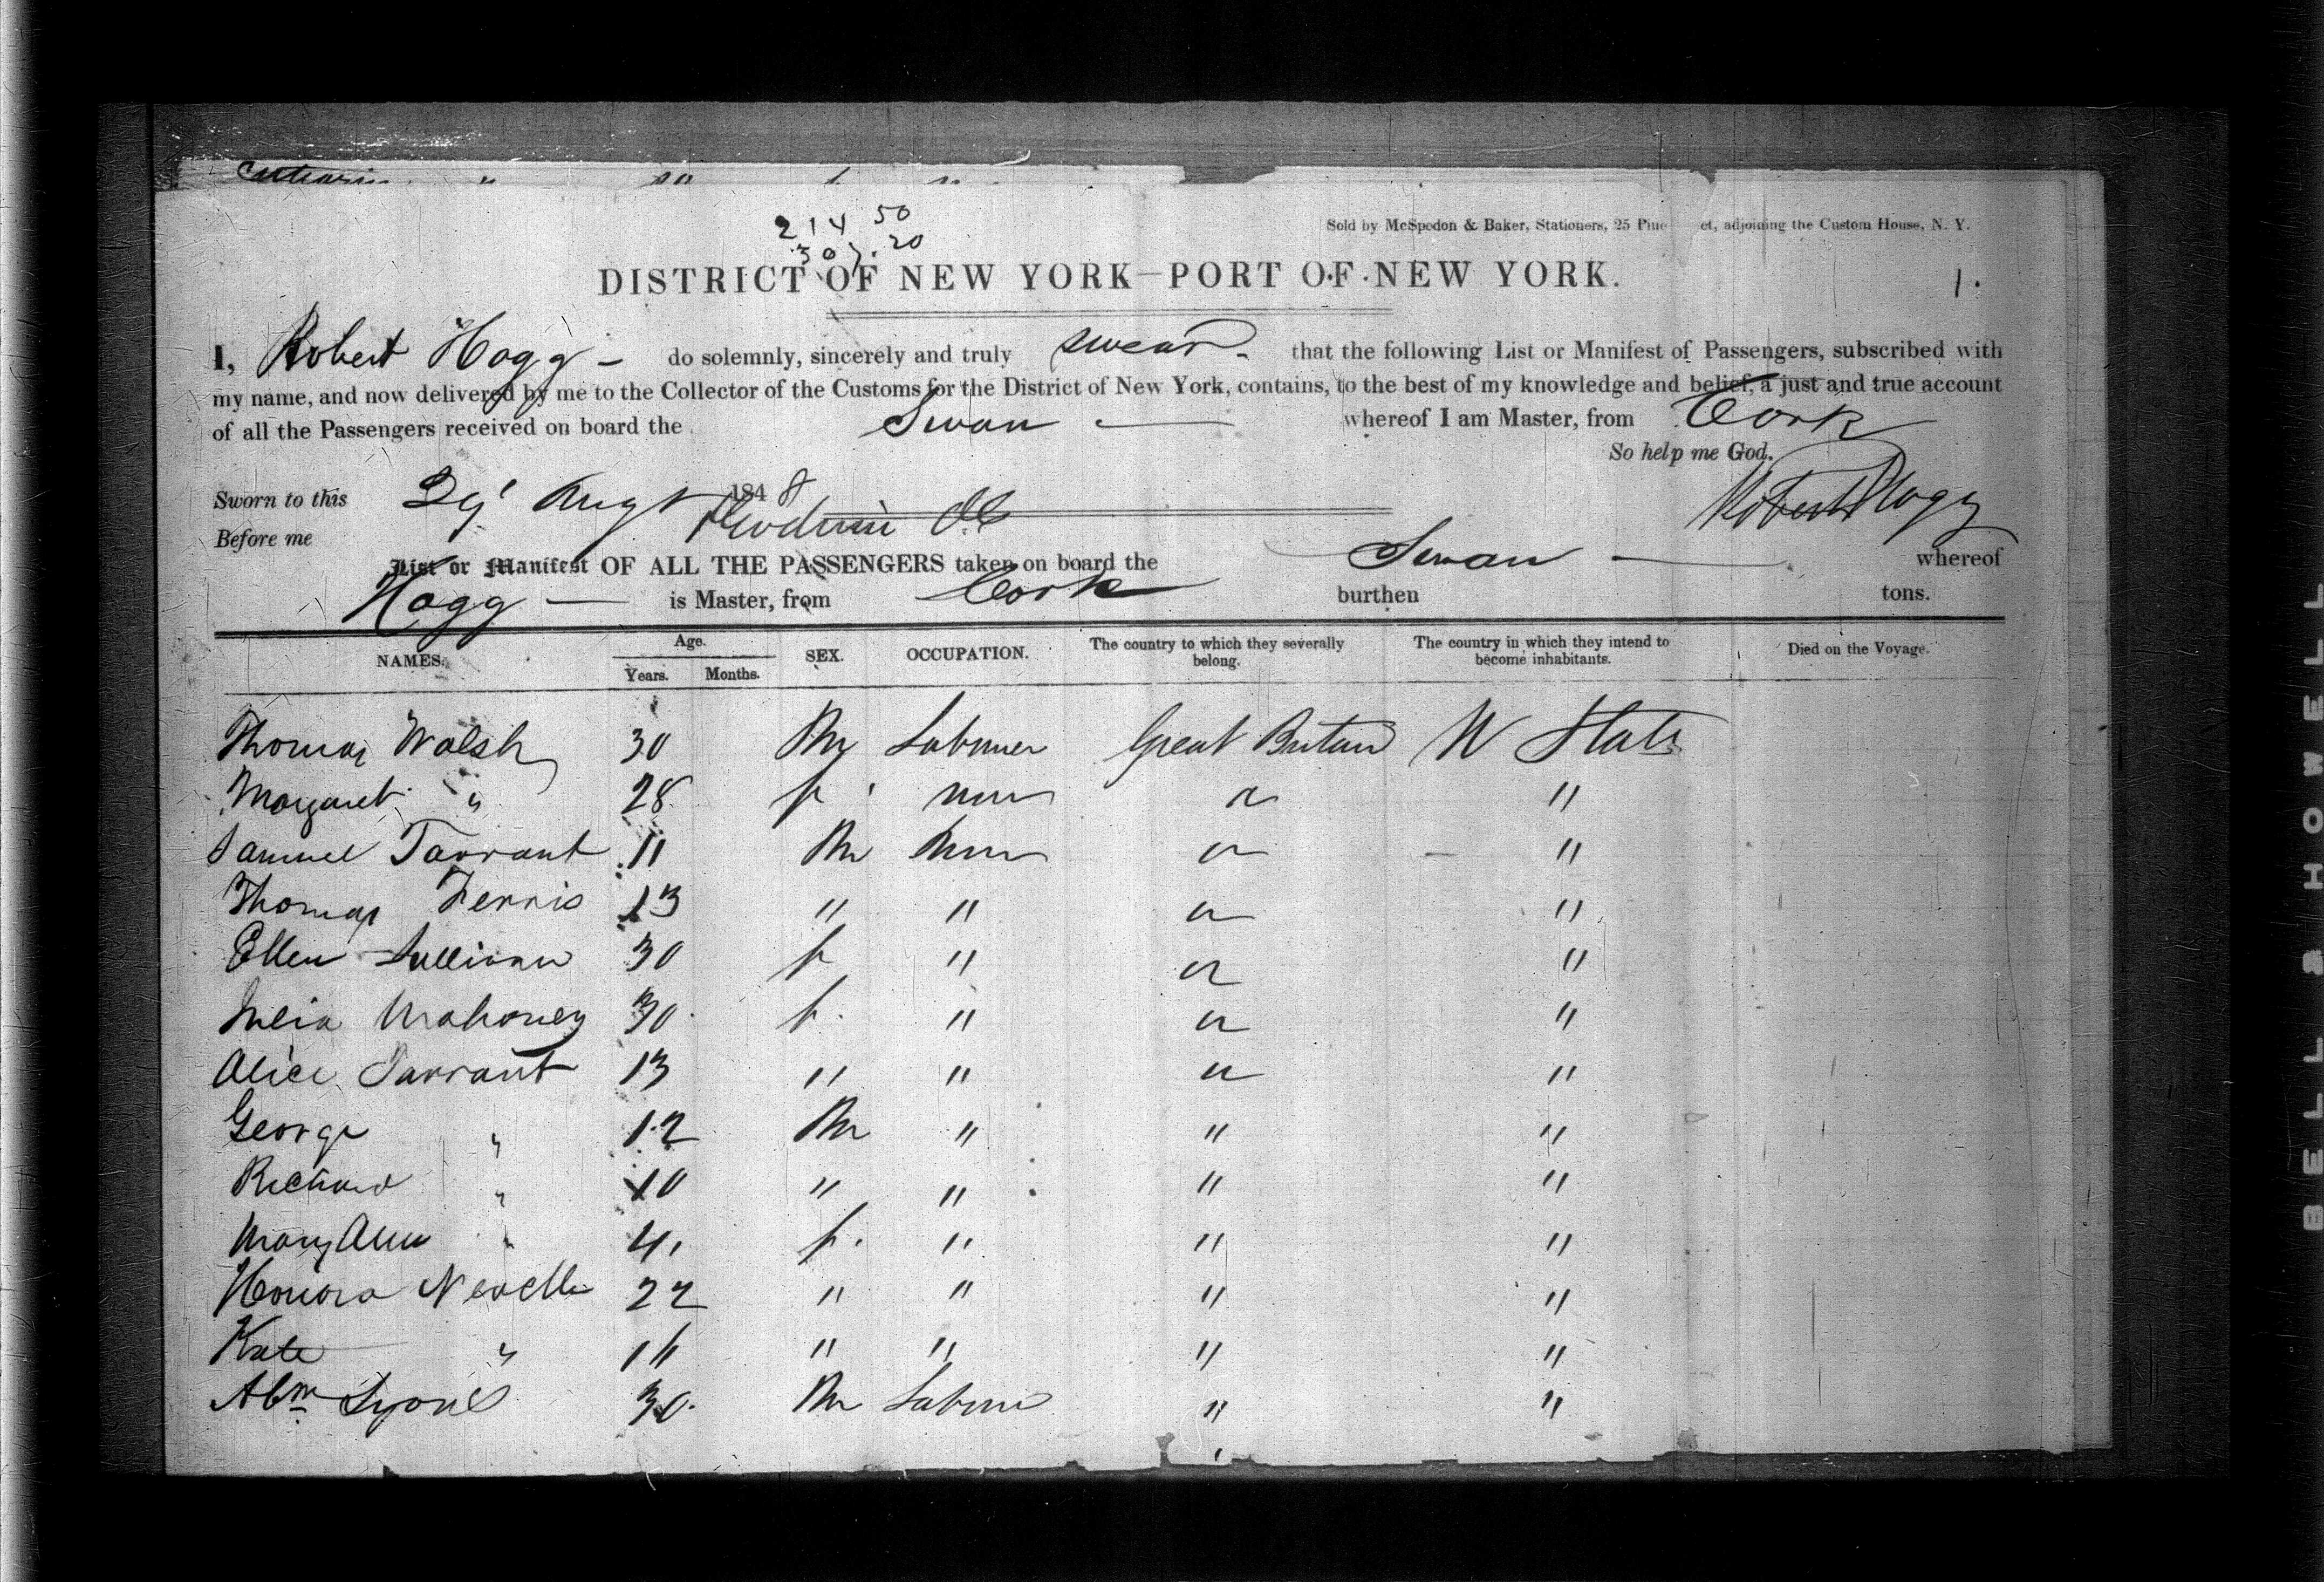 214 50
307. 20
Sold by McSpedon & Baker, Stationers, 25 Pine et, adjoining the Custom House, N. Y.
DISTRICT OF NEW YORK—PORT OF NEW YORK.
1.
I, Robert Hogg - do solemnly, sincerely and truly swear - that the following List or Manifest of Passengers, subscribed with
my name, and now delivered by me to the Collector of the Customs for the District of New York, contains, to the best of my knowledge and belief, a just and true account
of all the Passengers received on board the Swan — whereof I am Master, from Cork
So help me God.
Sworn to this Augt 1848 Robert Hogg
Before me
List or Manifest OF ALL THE PASSENGERS taken on board the Swan — whereof
Hogg — is Master, from Cork burthen tons.
NAMES. Age. Years. Months. SEX. OCCUPATION. The country to which they severally belong. The country in which they intend to become inhabitants. Died on the Voyage.
Thomas Walsh 30 M Labourer Great Britain U States
Margaret " 28 f none " "
Samuel Tarrant 11 M None " "
Thomas Ferris 13 " " " "
Ellen Sullivan 30 f " " "
Julia Mahoney 30 f. " " "
Alice Tarrant 13 " " " "
George " 12 M " " "
Richard " 10 " " " "
Mary Ann " 4 f. " " "
Honora Nevelle 22 " " " "
Kate " 16 " " " "
Abm Lyons 30 M Labourer " "
BELL & HOWELL